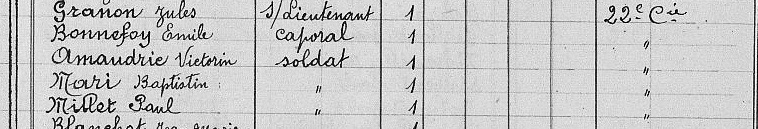 Granon Jules S/Lieutenant 1 22e Cie
Bonnefoy Emile caporal 1 "
Amaudric Victorin soldat 1 "
Mari Baptistin " 1 "
Millet Paul " 1 "
Blanchet 1